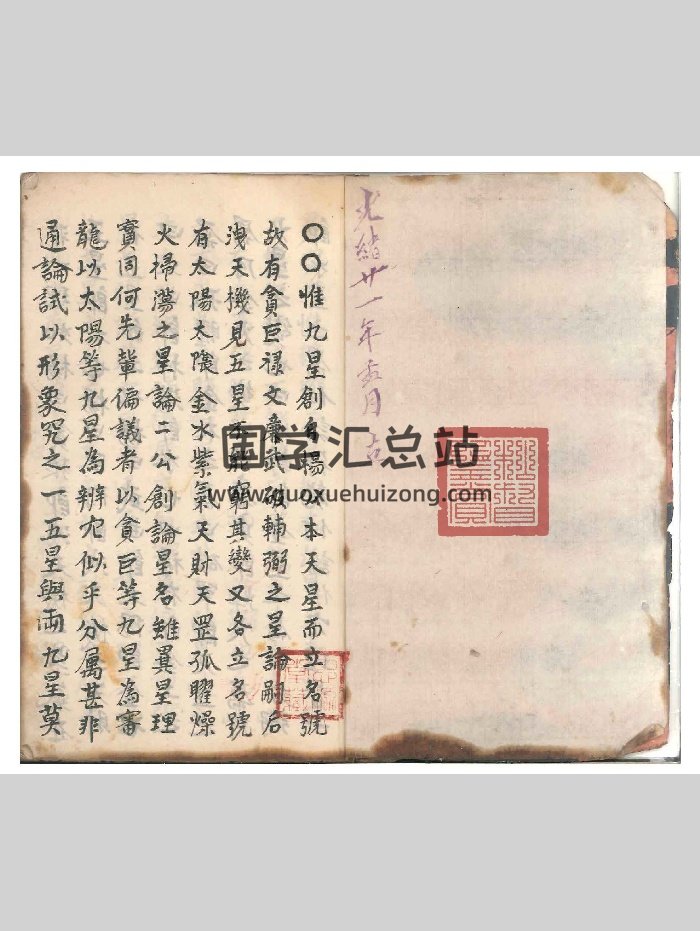 光緒廿一年五月
○○惟九星創自楊公本天星而立名號
故有貪巨祿文廉武破輔弼之星論嗣后
洩天機見五星不能窮其變又各立名號
有太陽太陰金水紫氣天財天罡孤曜燥
火掃蕩之星論二公創論星名雖異星理
實同何先輩偏議者以貪巨等九星為審
龍以太陽等九星為辨穴似乎分屬甚非
通論試以形象究之一五星與兩九星莫
国学汇总站
www.guoxuehuizong.com